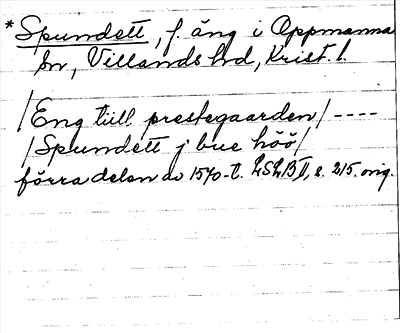 *Spundett, f. äng i Oppmanna
sn, Villands hd, Krist. l.
/Eng tiill prestegaarden/ ----
/Spundett j bue höö/
förra delen av 1570-t. LSLB II, s. 215. orig.